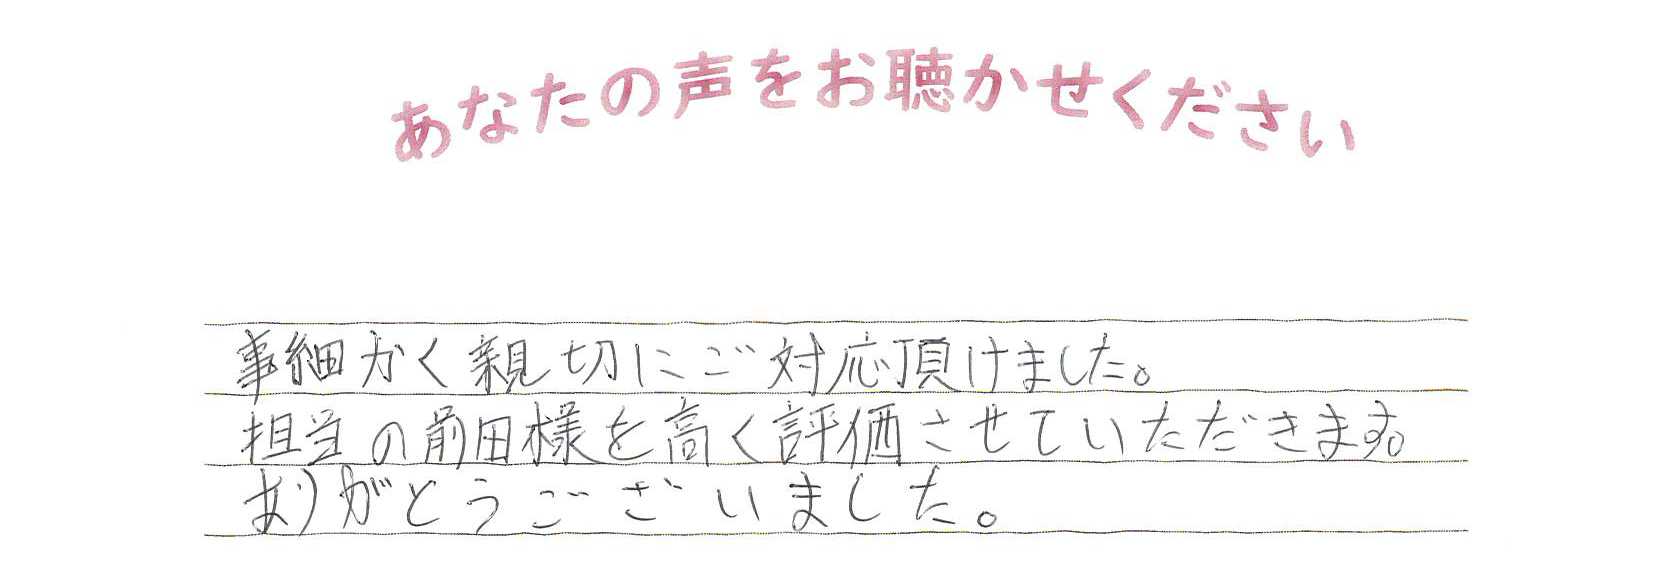 あなたの声をお聴かせください
事細かく親切にご対応頂けました。
担当の前田様を高く評価させていただきます。
ありがとうございました。